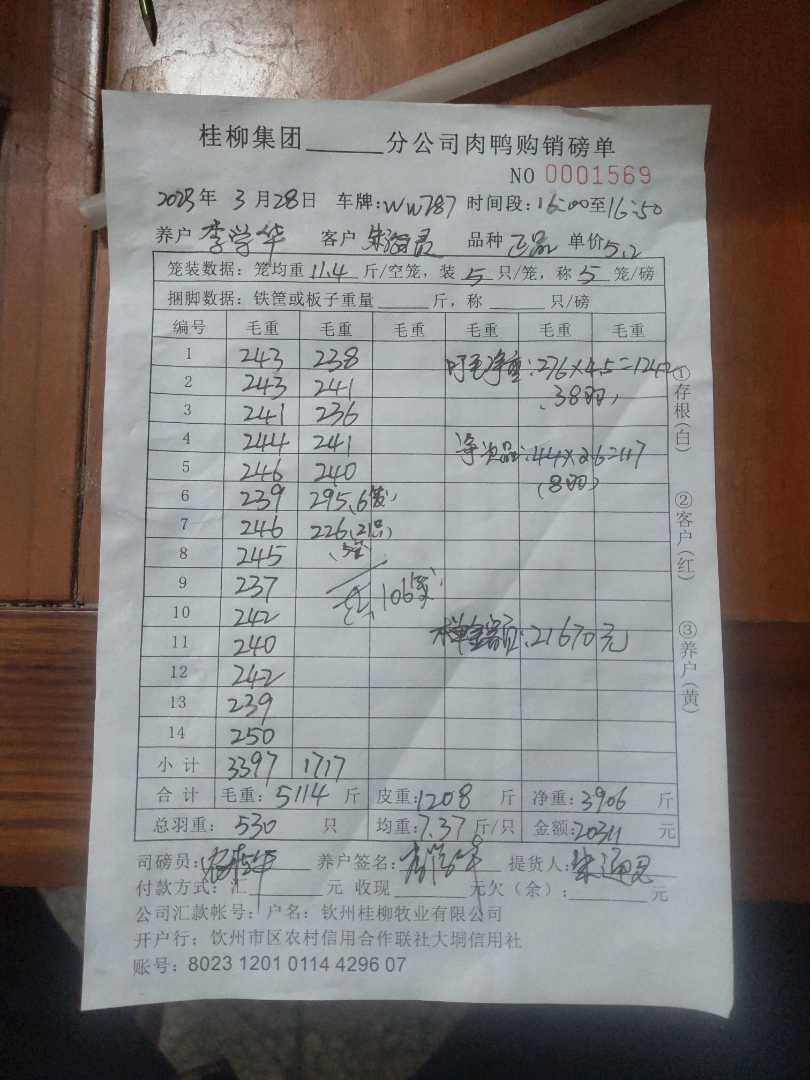 桂柳集团______分公司肉鸭购销磅单
NO 0001569
2023年 3月28日 车牌:WW787 时间段:16:00至16:50
养户 李学华 客户 朱 品种 正品 单价5.2
笼装数据：笼均重 11.4 斤/空笼，装 5 只/笼，称 5 笼/磅
捆脚数据：铁筐或板子重量______斤，称______只/磅
编号 毛重 毛重 毛重 毛重 毛重 毛重
1 243 238 毛净重:276×4.5=1242
2 243 241 (38羽)
3 241 236
4 244 241 净次品:44×2.6=117
5 246 240 (8羽)
6 239 295(6笼)
7 246 226(21只)
8 245 5笼
9 237 106笼
10 242
11 240 单金额:21670元
12 242
13 239
14 250
小计 3397 1717
合计 毛重:5114 斤 皮重:1208 斤 净重:3906 斤
总羽重: 530 只 均重:7.37 斤/只 金额:20311 元
司磅员: 养户签名: 李学华 提货人: 朱
付款方式：汇______元 收现______元欠（余）:______元
公司汇款帐号：户名：钦州桂柳牧业有限公司
开户行：钦州市区农村信用合作联社大垌信用社
账号：8023 1201 0114 4296 07
①存根(白)
②客户(红)
③养户(黄)